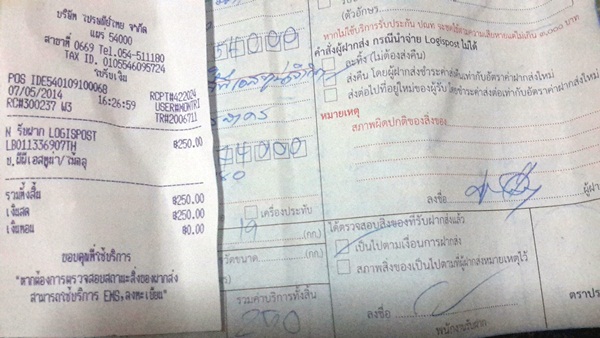 บริษัท ไปรษณีย์ไทย จำกัด
แพร่ 54000
สาขาที่ 0669 Tel.054-511180
TAX ID. 0105546095724
ใบรับเงิน
POS IDE540109100068 RCPT#422024
07/05/2014 16:26:59
RC#300237 W3 TR#2006711
N รับฝาก LOGISPOST ฿250.00
LB011336907TH
รวมทั้งสิ้น ฿250.00
เงินสด ฿250.00
เงินทอน ฿0.00
ขอบคุณที่ใช้บริการ
"หากต้องการตรวจสอบสถานะสิ่งของฝากส่ง
สามารถใช้บริการ EMS,ลงทะเบียน"
(ตัวอักษร
หากไม่ใช้บริการรับประกัน ปณท จะชดใช้ตามความเสียหายแต่ไม่เกิน ๒,๐๐๐ บาท
คำสั่งผู้ฝากส่ง กรณีนำจ่าย Logispost ไม่ได้
ละทิ้ง (ไม่ต้องส่งคืน)
ส่งคืน โดยผู้ฝากส่งชำระค่าส่งคืนเท่ากับอัตราค่าฝากส่งใหม่
ส่งต่อไปที่อยู่ใหม่ของผู้รับ โดยชำระค่าส่งต่อเท่ากับอัตราค่าฝากส่งใหม่
หมายเหตุ
สภาพผิดปกติของสิ่งของ
ลงชื่อ ผู้ฝาก
เครื่องประทับ
19 (กก.)
ขนาด (กก.)
รวมค่าบริการทั้งสิ้น
250
ได้ตรวจสอบสิ่งของที่รับฝากส่งแล้ว
เป็นไปตามเงื่อนการฝากส่ง
สภาพสิ่งของเป็นไปตามที่ผู้ฝากส่งหมายเหตุไว้
ลงชื่อ
พนักงานรับฝาก
ตราประ